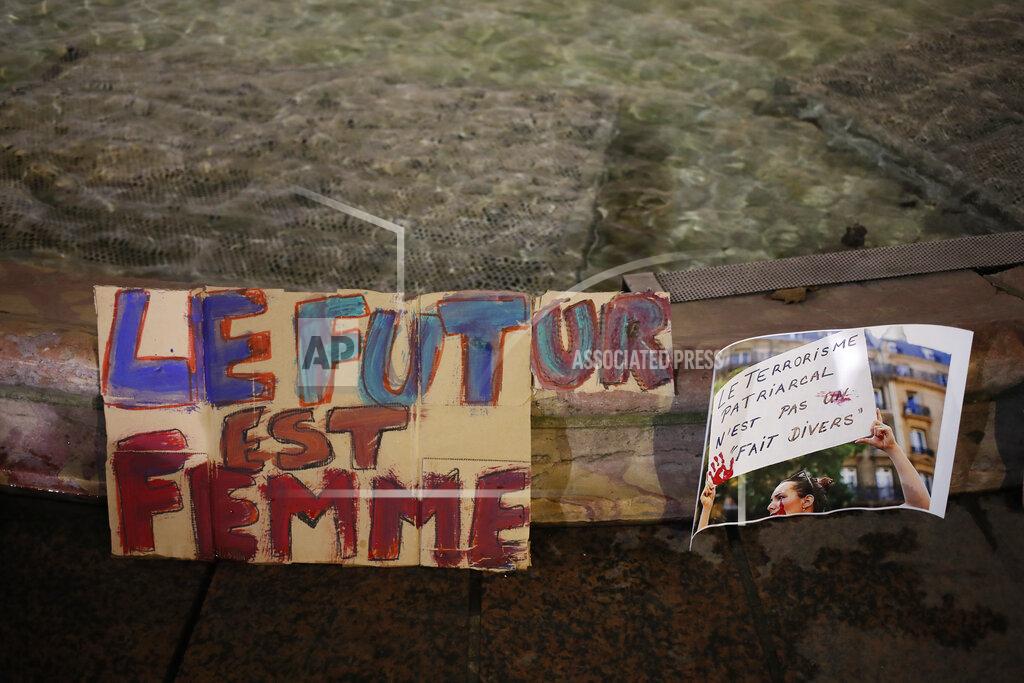 LE FUTUR
EST
FEMME
AP
ASSOCIATED PRESS
LE TERRORISME
PATRIARCAL
N'EST PAS UN
"FAIT DIVERS"